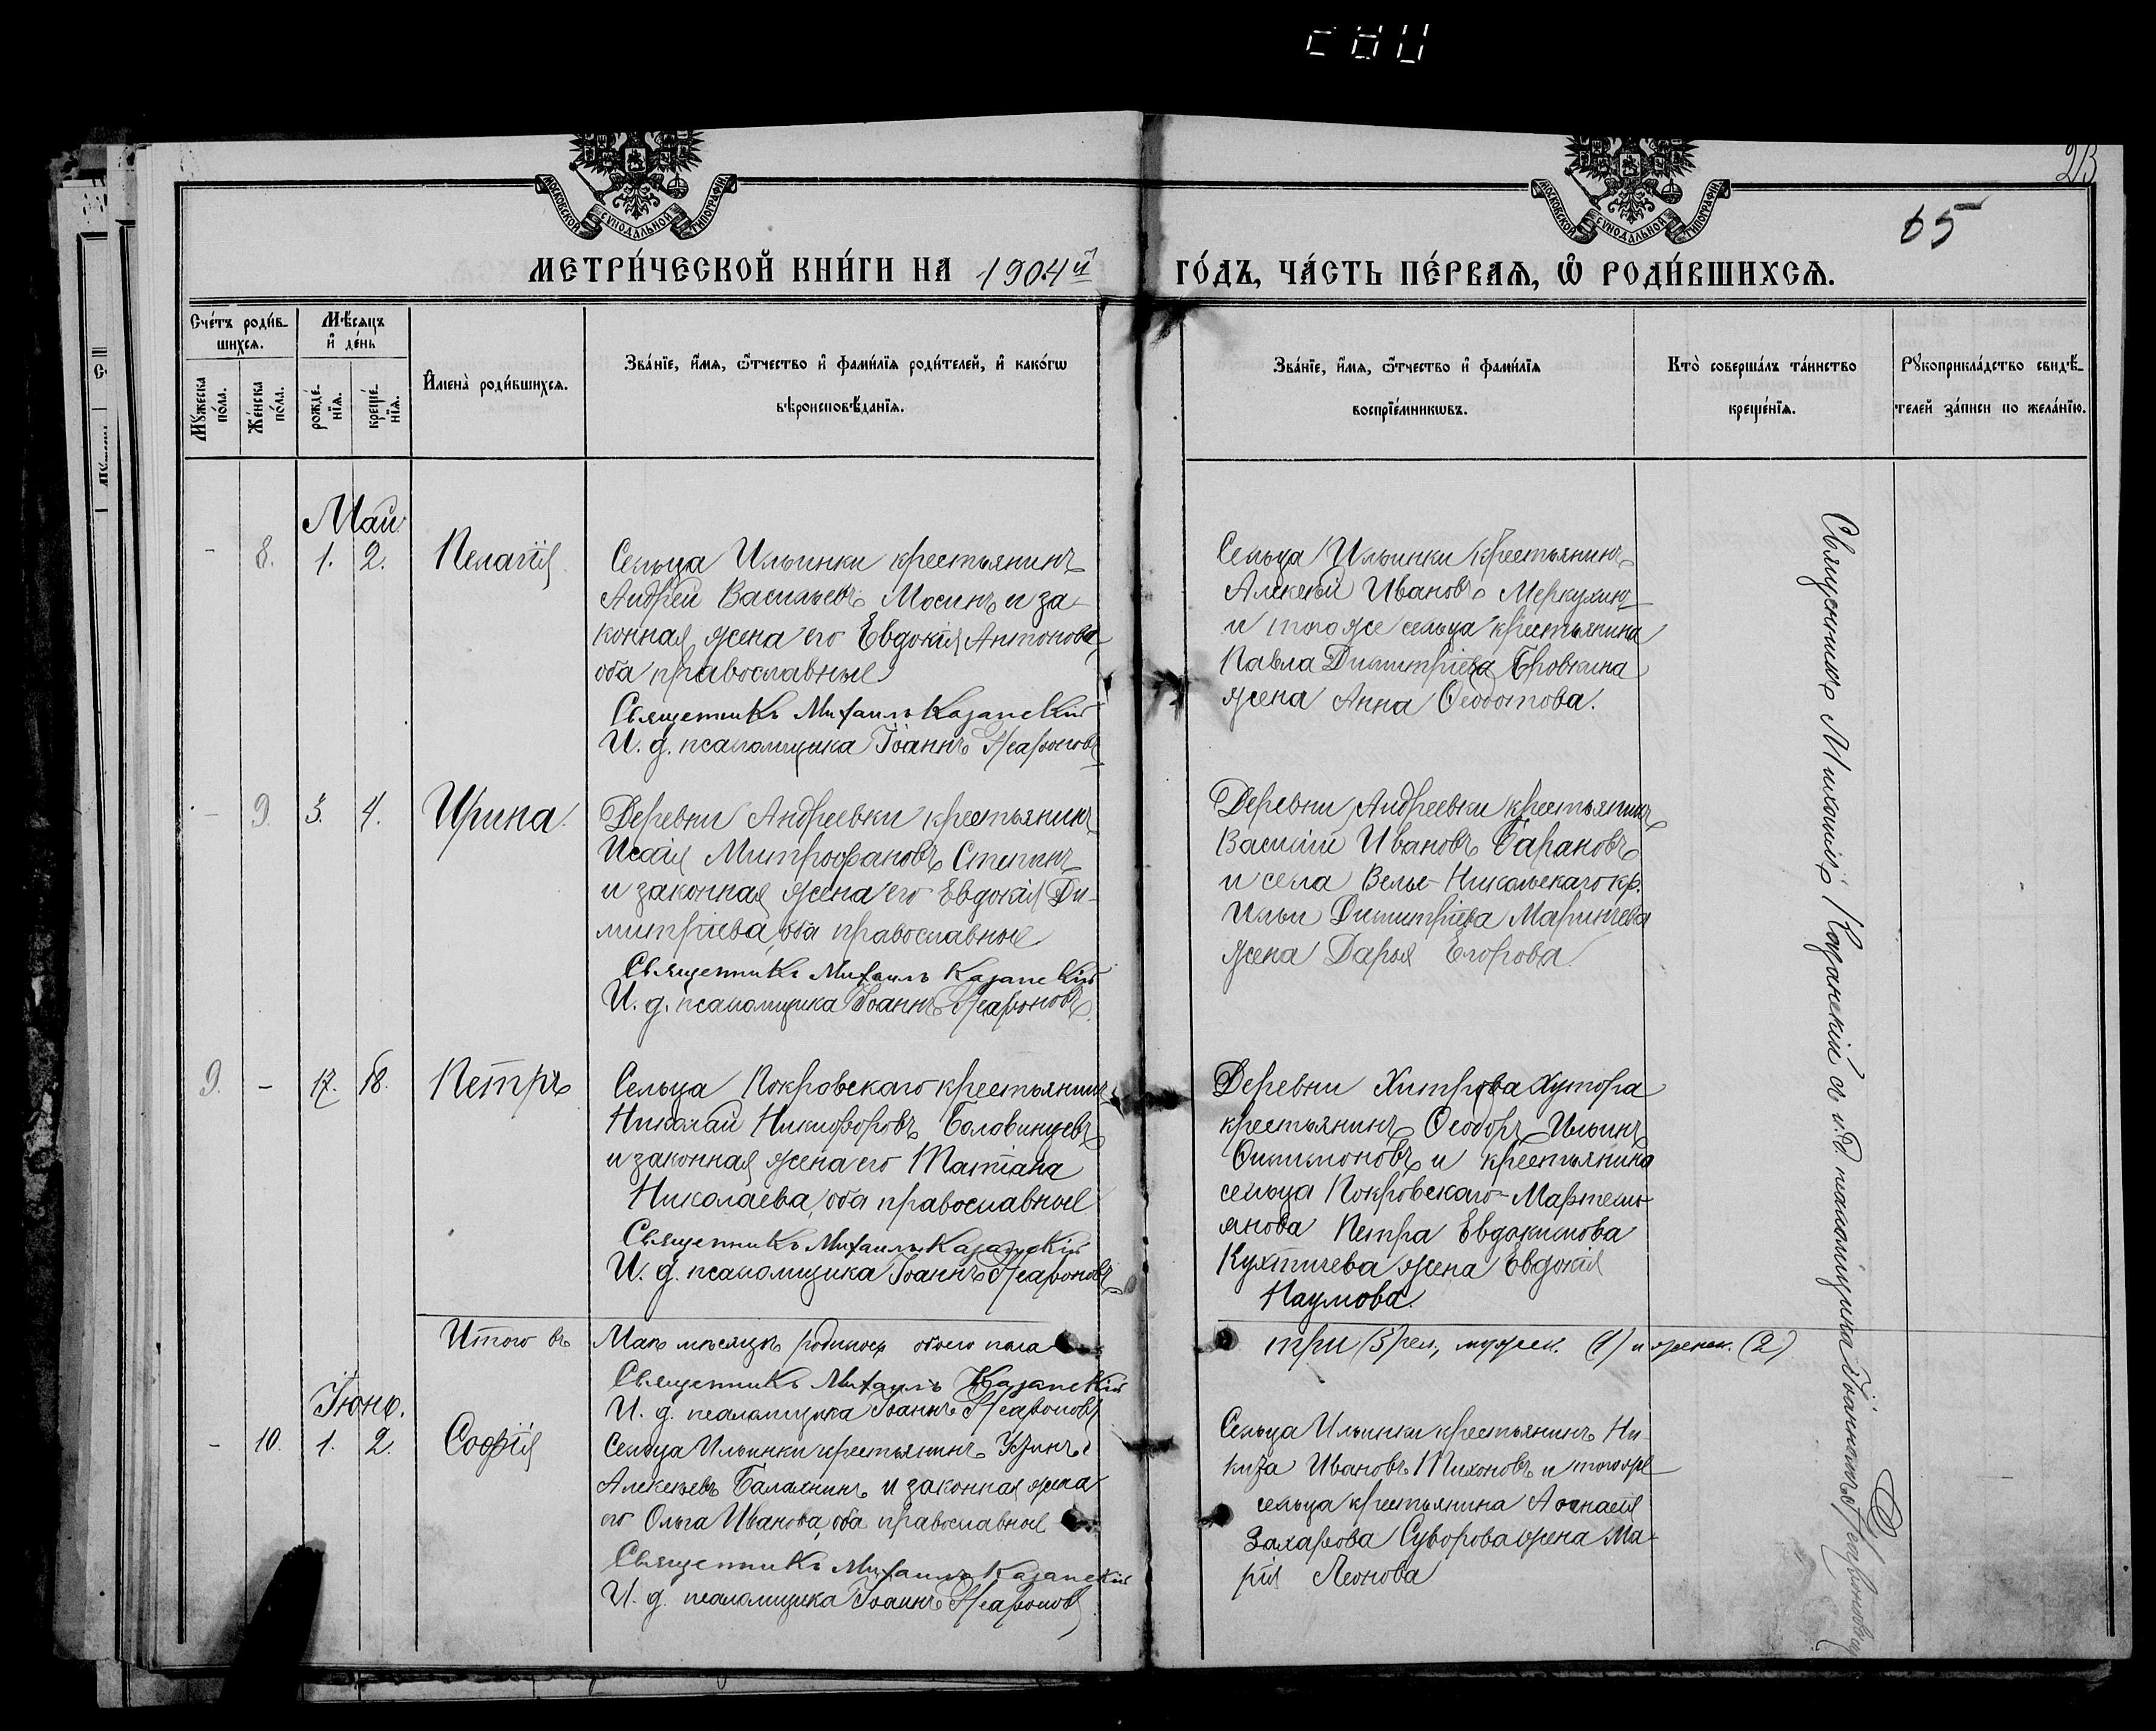 23
65
МОСКОВСКОЙ СѴНОДАЛЬНОЙ ТИПОГРАФІИ
МОСКОВСКОЙ СѴНОДАЛЬНОЙ ТИПОГРАФІИ
МЕТРИ́ЧЕСКОЙ КНИ́ГИ НА 1904й ГО́ДЪ, ЧА́СТЬ ПЕ́РВАѦ, Ѡ҆ РОДИ́ВШИХСѦ.
Счéтъ роди́в-
шихсѧ.
Мꙋ́жеска по́ла.
Же́нска по́ла.
Мѣ́сѧцъ
и҆ де́нь
рожде́-
нїѧ.
креще́-
нїѧ.
И҆мена̀ роди́вшихсѧ.
Зва́нїе, и҆́мѧ, ѻ҆́тчество и҆ фами́лїѧ роди́телей, и҆ како́гѡ
вѣроисповѣ́данїѧ.
Зва́нїе, и҆́мѧ, ѻ҆́тчество и҆ фами́лїѧ
воспрїе́мникѡвъ.
Кто̀ соверша́лъ та́инство
креще́нїѧ.
Рꙋкоприкла́дство свидѣ́-
телей за́писи по жела́нїю.
Май
- 8. 1. 2. Пелагія
Сельца Ильинки крестьянинъ
Андрей Васильевъ Мосинъ и за-
конная жена его Евдокія Антонова,
оба православные
Священникъ Михаилъ Казанскій
И. д. псаломщика Іоаннъ
Сельца Ильинки крестьянинъ
Алексѣй Ивановъ Меркулинъ
и того же сельца крестьянина
Павла Димитріева Бровкина
жена Анна Ѳеодотова.
- 9. 3. 4. Ирина
Деревни Андреевки крестьянинъ
Исаія Митрофановъ Степинъ
и законная жена его Евдокія Ди-
митріева, оба православные
Священникъ Михаилъ Казанскій
И. д. псаломщика Іоаннъ
Деревни Андреевки крестьянинъ
Василій Ивановъ Барановъ
и села Велье-Никольскаго кр.
Ильи Димитріева
жена Дарья Егорова
9. - 17. 18. Петръ
Сельца Покровскаго крестьянинъ
Николай Никифоровъ Боловинцевъ
и законная жена его Татіана
Николаева, оба православные
Священникъ Михаилъ Казанскій
И. д. псаломщика Іоаннъ
Деревни Хитрова Хутора
крестьянинъ Ѳеодоръ Ильинъ
и крестьянина
сельца Покровскаго-Мартемь-
янова Петра Евдокимова
жена Евдокія
Наумова.
Итого въ Маѣ мѣсяцѣ родилось обоего пола три (3) чел., мужеск. (1) и женск. (2)
Священникъ Михаилъ Казанскій
И. д. псаломщика Іоаннъ
Іюнь.
- 10. 1. 2. Софія
Сельца Ильинки крестьянинъ
Алексѣевъ Балаянинъ и законная жена
его Ольга Иванова, оба православные
Священникъ Михаилъ Казанскій
И. д. псаломщика Іоаннъ
Сельца Ильинки крестьянинъ Ни-
кита Ивановъ Тихоновъ и того же
сельца крестьянина Аѳанасія
Захарова Суворова жена Ма-
рія Леонова
Священникъ Михаилъ Казанскій съ и. д. псаломщика Іоанномъ